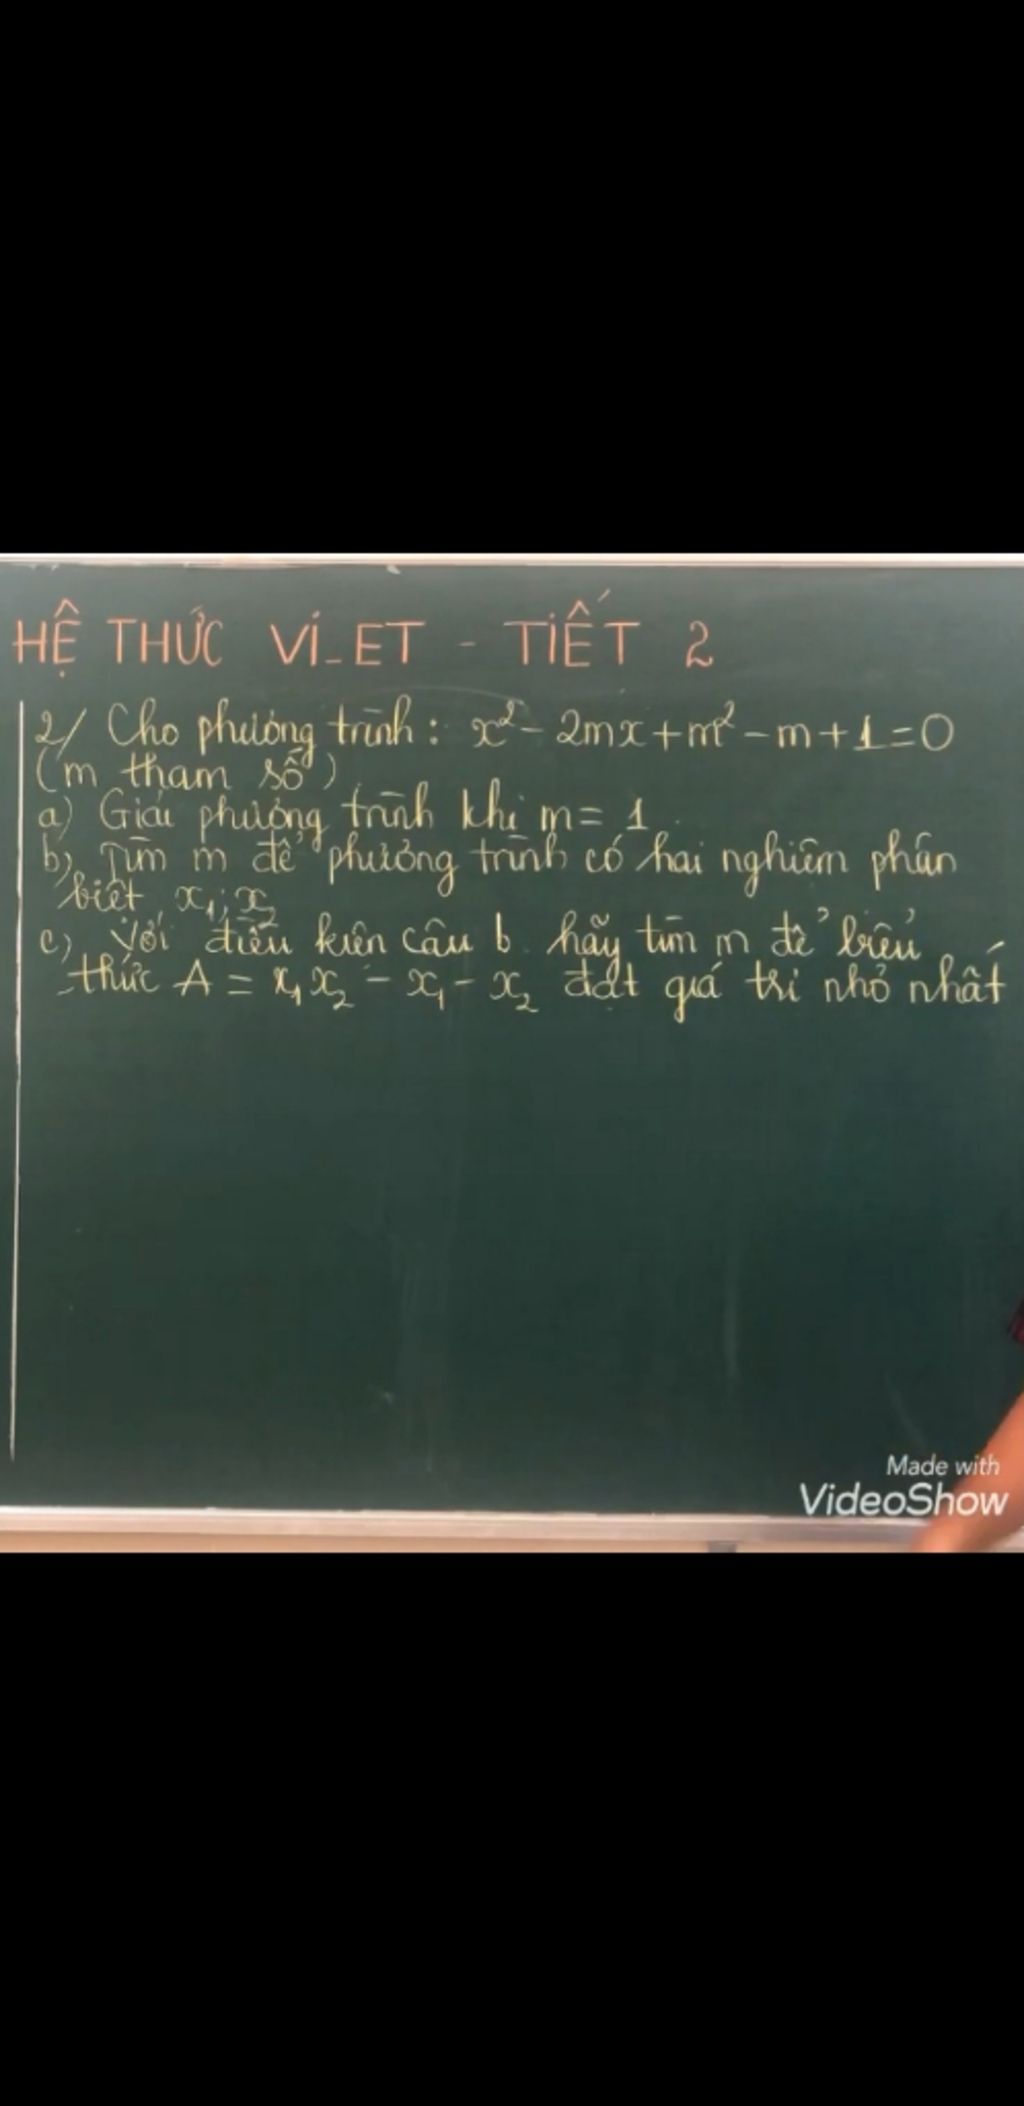 HỆ THỨC Vi-ET - TIẾT 2
2/ Cho phương trình: x² - 2mx + m² - m + 1 = 0
(m tham số)
a) Giải phương trình khi m = 1.
b) Tìm m để phương trình có hai nghiệm phân
biệt x₁; x₂
c) Với điều kiện câu b hãy tìm m để biểu
thức A = x₁x₂ - x₁ - x₂ đạt giá trị nhỏ nhất
Made with
VideoShow